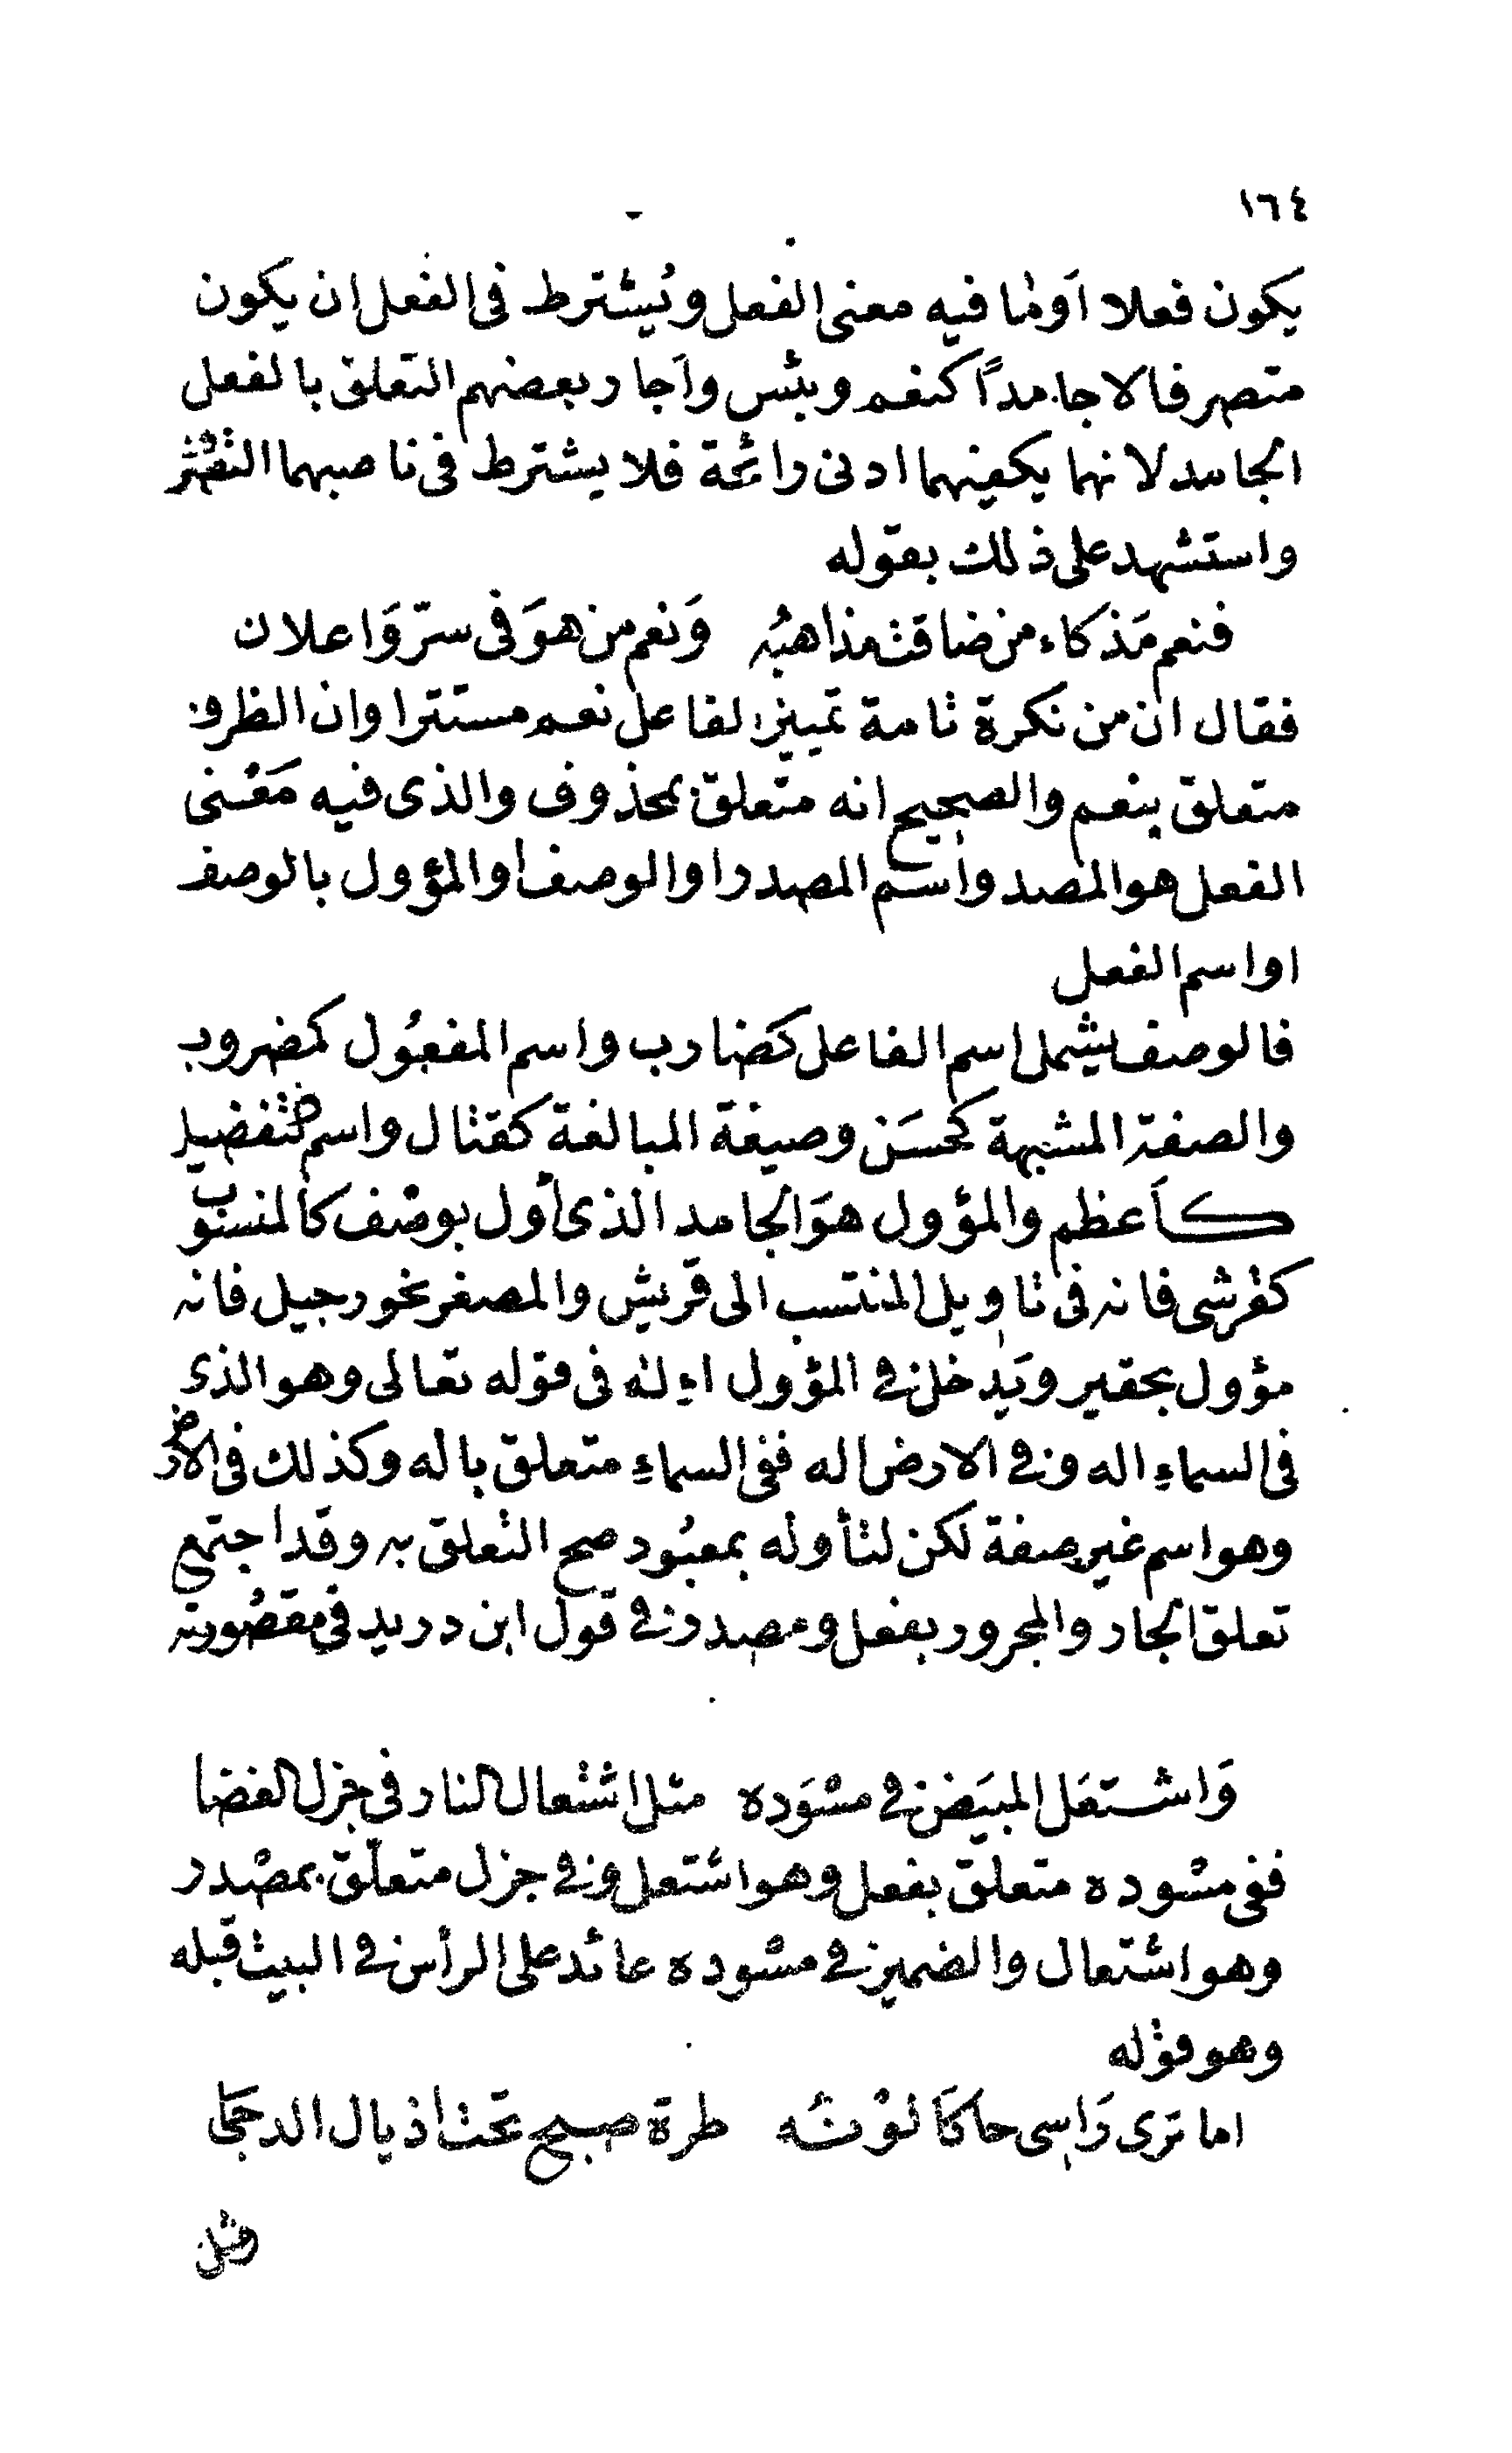 ١٦٤
يكون فعلا اَوما فيه معنى الفعل ويُشترط فى الفعل ان يكون
متصرفا لا جامداً كنعم وبئس وآجاز بعضهم التعلق بالفعل
الجامد لانهما يكفيهما ادنى رائحة فلا يشترط فى ناصبهما التصرف
واستشهد على ذلك بقوله
فنعم مَزكاء من ضاقت مذاهبُه وَنعم من هوَ فى سرّ وَاعلان
فقال ان من نكرة تامة تمييز لفاعل نعم مستترا وان الظرف
متعلق بنعم والصحيح انه متعلق بمحذوف والذى فيه مَعْنى
الفعل هو المصد واسم المصدر او الوصف او المؤول بالوصف
او اسم الفعل
فالوصف يشمل اسم الفاعل كَضارب واسم المفعُول كمضروب
والصفة المشبهة كحسَن وصيغة المبالغة كقتال واسم التفضيل
كاَعظم والمؤول هوَ الجامد الذى أول بوصْف كالمنسوب
كقرشى فانه فى تاويل المنتسب الى قريش والمصغر نحو رجيل فانه
مؤول بحقير ويَدخل فى المؤول اِله فى قوله تعالى وهو الذى
فى السماءِ اله وفى الارض اله ففى السماءِ متعلق باله وكذلك فى الارض
وهو اسم غير صفة لكن لتأوله بمعبُود صح التعلق به وقد اجتمع
تعلق الجار والمجرور بفعل ومصدر فى قول ابن دريد فى مقصُورته
وَاشتعَل المبيَض فى مسْوَده مثل اشتعال النار فى جزل الغضا
ففى مسْوده متعلق بفعل وهو اشتعل وفى جزل متعلّق بمصْدر
وهو اشتعال والضمير فى مسْوده عائد على الرأس فى البيت قبله
وهو قوْله
اما ترى رَاسى حاكىَ لوْنُه طرة صبح تحت اذيال الدجىَ